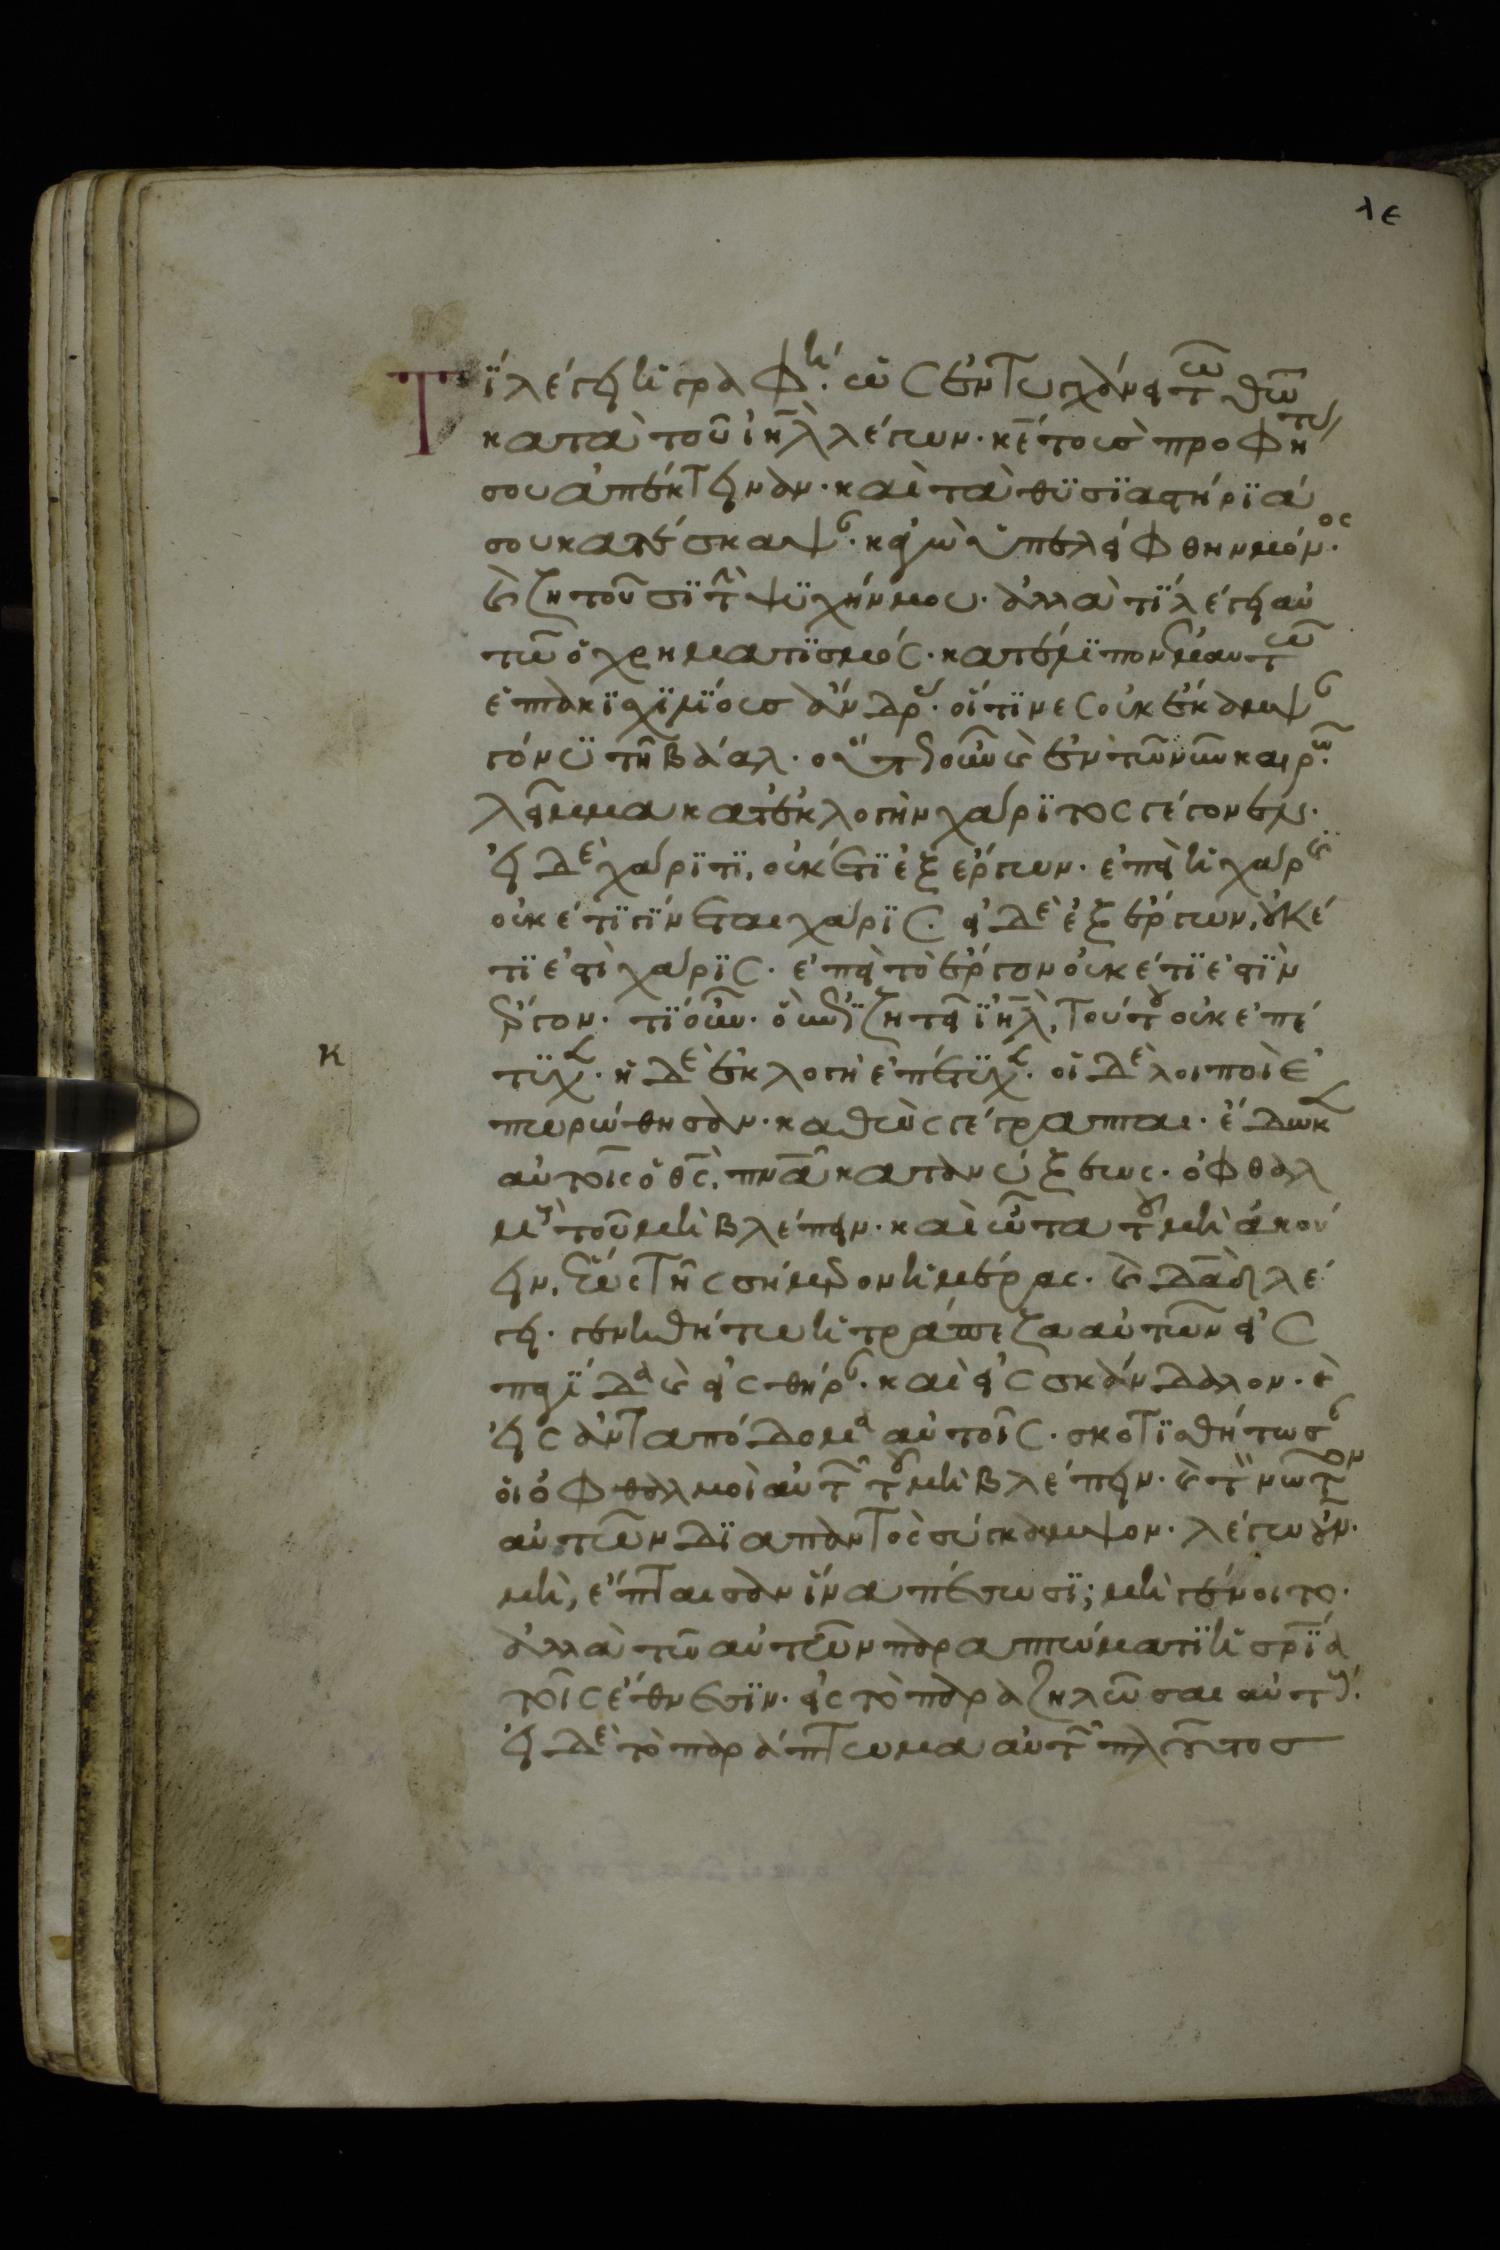 λε
Τί λέγει ἡ γραφή· ὡς ἐντυγχάνει τῶ θῶ
κατὰ τοῦ ἰηλ λέγων· κε τοὺς προφήτας
σου ἀπέκτειναν· καὶ τὰ θυσιαστήριά
σου κατέσκαψαν· κἀγὼ ὑπελείφθην μόνος·
καὶ ζητοῦσι τὴν ψυχήν μου· ἀλλὰ τί λέγει αὐ
τῶ ὁ χρηματισμός· κατέλιπον ἐμαυτῶ
ἑπτακισχιλίους ἄνδρας· οἵτινες οὐκ ἔκαμψαν
γόνυ τῆ βάαλ· οὕτως οὖν καὶ ἐν τῶ νῦν καιρῶ·
λεῖμμα κατ' ἐκλογὴν χάριτος γέγονεν·
εἰ δὲ χάριτι, οὐκέτι ἐξ ἔργων· ἐπεὶ ἡ χάρις
οὐκέτι γίνεται χάρις· εἰ δὲ ἐξ ἔργων, οὐκέ
τι ἐστὶ χάρις· ἐπεὶ τὸ ἔργον οὐκέτι ἐστὶν
ἔργον· τί οὖν· ὃ ἐπιζητεῖ ἰηλ, τούτου οὐκ ἐπέ
τυχεν· ἡ δὲ ἐκλογὴ ἐπέτυχεν· οἱ δὲ λοιποὶ ἐ
κ
πωρώθησαν· καθὼς γέγραπται· ἔδωκεν
αὐτοῖς ὁ θς, πνα κατανύξεως· ὀφθαλ
μοὺς τοῦ μὴ βλέπειν· καὶ ὦτα τοῦ μὴ ἀκού
ειν, ἕως τῆς σήμερον ἡμέρας· καὶ δαδ λέ
γει· γενηθήτω ἡ τράπεζα αὐτῶν εἰς
παγίδα καὶ εἰς θήραν· καὶ εἰς σκάνδαλον· καὶ
εἰς ἀνταπόδομα αὐτοῖς· σκοτισθήτωσαν
οἱ ὀφθαλμοὶ αὐτῶν τοῦ μὴ βλέπειν· καὶ τὸν νῶτον
αὐτῶν διαπαντὸς σύγκαμψον· λέγω οὖν·
μὴ, ἔπταισαν ἵνα πέσωσι; μὴ γένοιτο·
ἀλλὰ τῶ αὐτῶν παραπτώματι ἡ σρία
τοῖς ἔθνεσιν· εἰς τὸ παραζηλῶσαι αὐτούς·
εἰ δὲ τὸ παράπτωμα αὐτῶν πλοῦτος